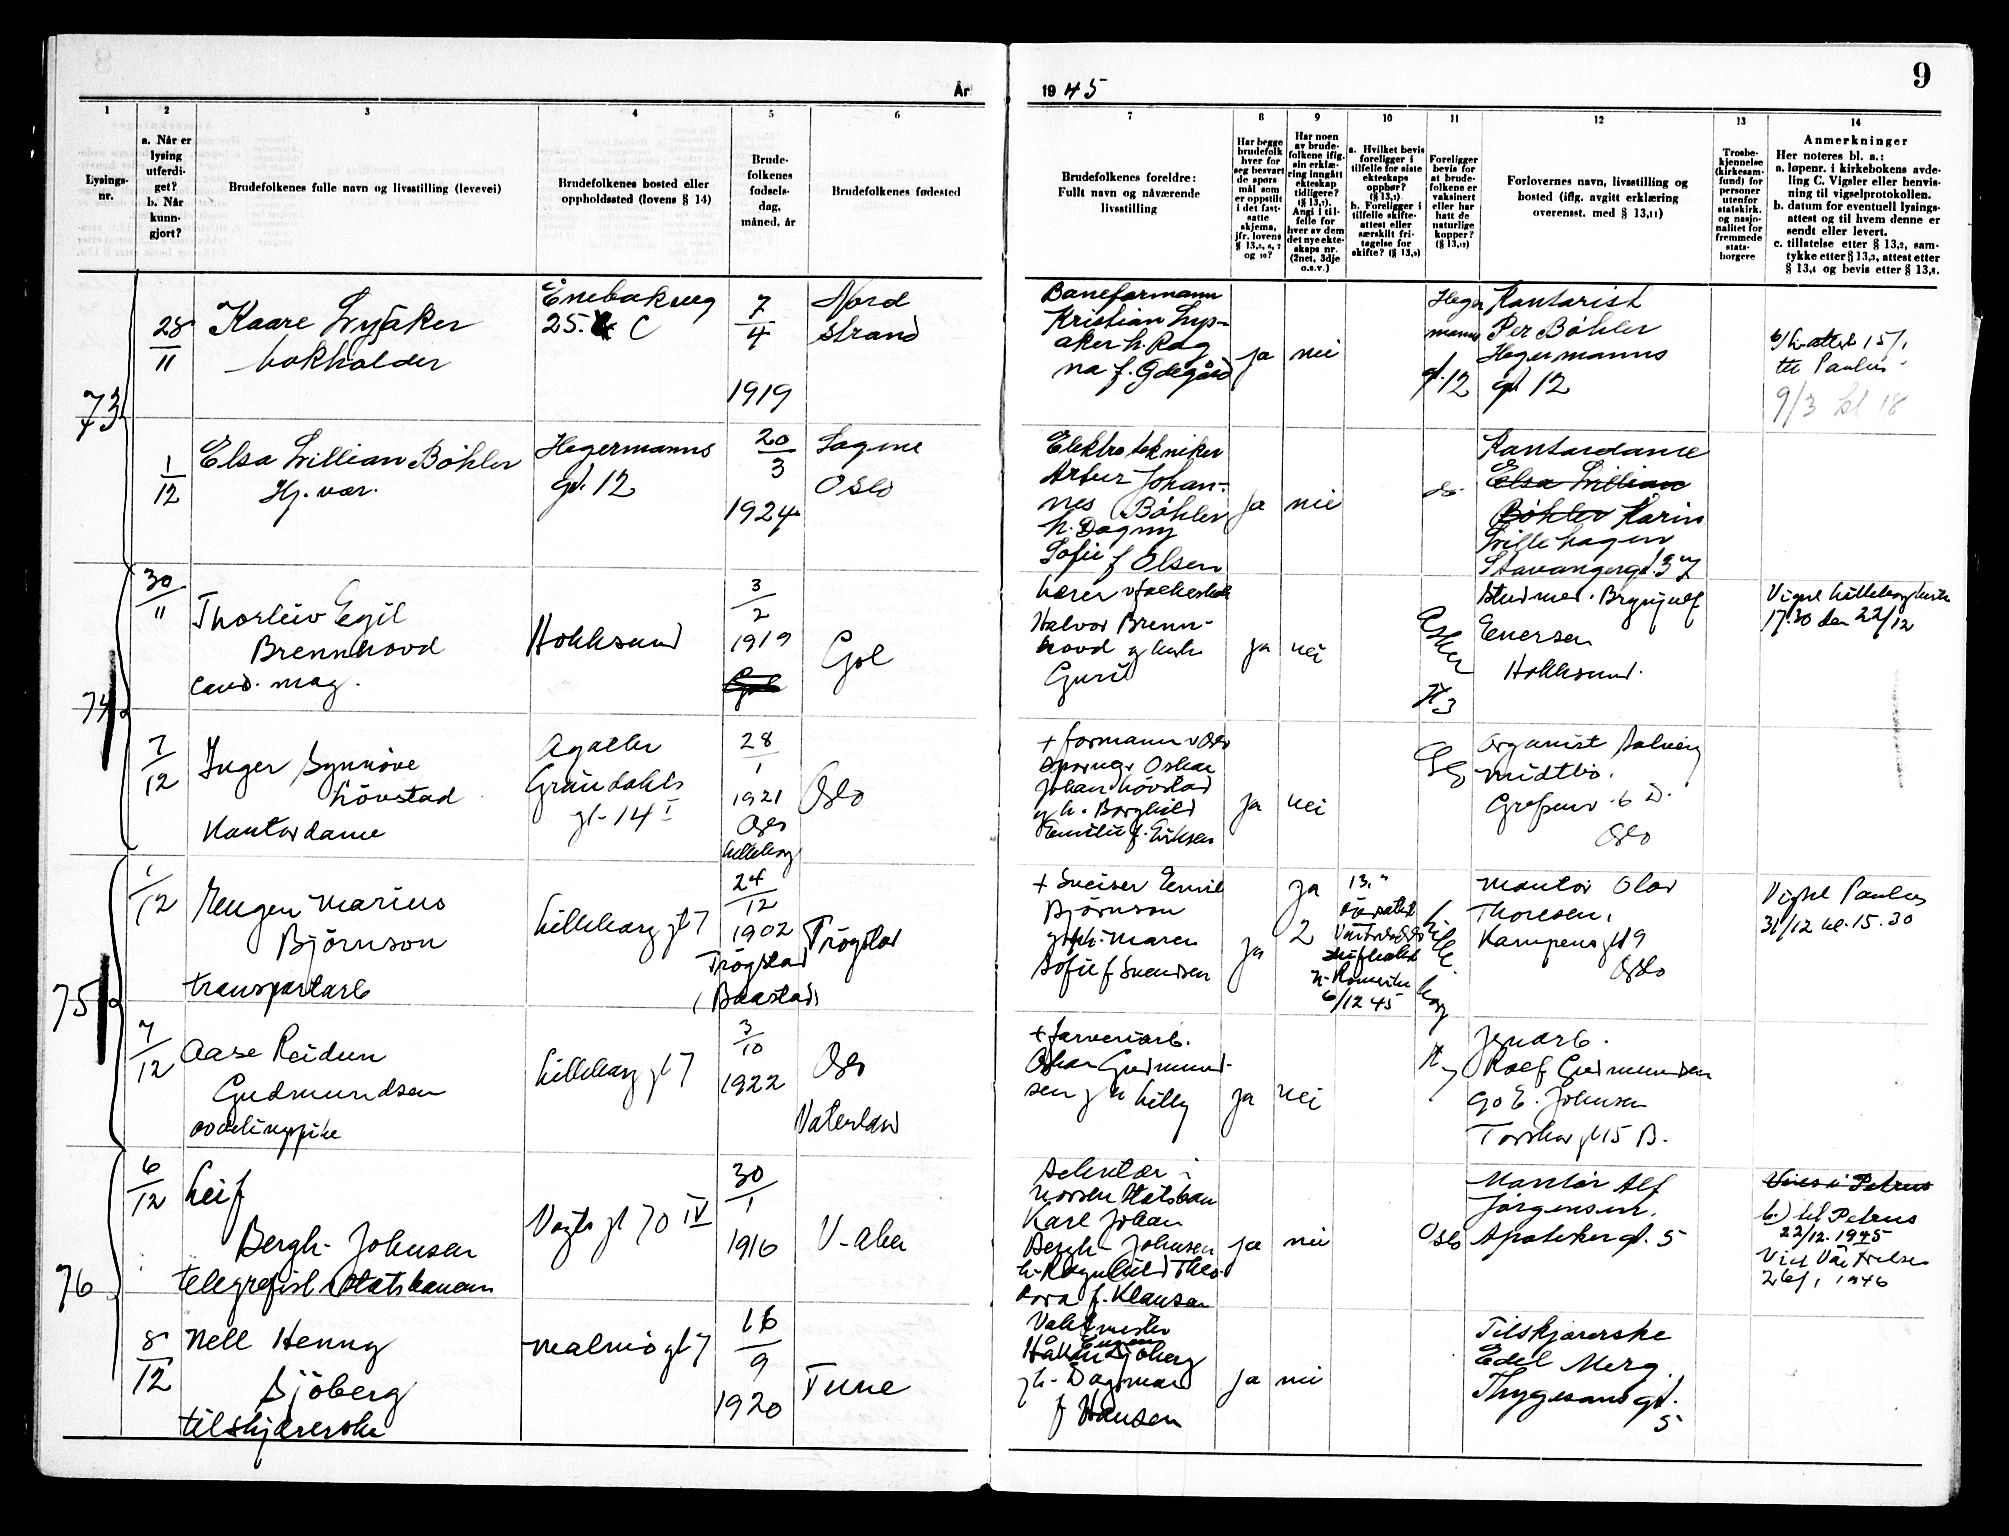 År 1945
9
1
2
3
4
5
6
7
8
9
10
11
12
13
14
Lysings-
nr.
a. Når er
lysing
utferdi-
get?
b. Når
kunn-
gjort?
Brudefolkenes fulle navn og livsstilling (levevei)
Brudefolkenes bosted eller
oppholdssted (lovens § 14)
Brude-
folkenes
fødsels-
dag,
måned, år
Brudefolkenes fødested
Brudefolkenes foreldre:
Fullt navn og nåværende
livsstilling
Har begge
brudefolk
hver for
seg besvart
de spørs
mål som
er oppstilt
i det fast-
satte
skjema,
jfr. lovens
Har noen
av brude-
folkene iflg.
sin erklæ-
ring inngått
ekteskap
tidligere?
(§ 13,7).
Angi i til-
felle for
hver av dem
det nye ekte-
skaps nr.
(2net, 3dje
o.s.v.)
a. Hvilket bevis
foreligger i
tilfelle for siste
ekteskaps
opphør?
b. Foreligger i
tilfelle skifte-
attest eller
særskilt fri-
tagelse for
skifte? (§ 13,9)
Foreligger
bevis for
at brude-
folkene er
vaksinert
eller har
hatt de
naturlige
kopper?
(§ 13,12)
Forlovernes navn, livsstilling og
bosted (iflg. avgitt erklæring
overensst. med § 13,11)
Trosbe-
kjennelse
(kirkesam-
fund) for
personer
utenfor
statskirk.
og nasjo-
nalitet for
fremmede
stats-
borgere
Anmerkninger
Her noteres bl. a.:
a. løpenr. i kirkebokens avde-
ling C. Vigsler eller henvis-
ning til vigselprotokollen.
b. datum for eventuell lysings-
attest og til hvem denne er
sendt eller levert.
c. tillatelse etter § 13,2, sam-
tykke etter § 13,3, attest etter
§ 13,4 og bevis etter § 13,8.
73
28/11
Kaare Lysaker
bokholder
Enebakveg
25. C
7/4
1919
Nord
strand
Baneformann
Kristian Lys-
aker h. Rag
na f. Ødegård
ja
nei
Heger
manns
gt. 12
Kontorist
Per Bøhler
Hegermanns
gt 12
b/ L. attest 15/1
til Paulus
9/3 kl 18
1/12
Elsa Lillian Böhler
Hj. vær.
Hegermanns
gt. 12
20/3
1924
Sagene
Oslo
Elektrotekniker
Artur Johan-
nes Böhler
h. Dagny
Sofie f Olsen
ja
nei
do.
Kontordame
Elsa Lillian
Böhler Karin
Lillehagen
Stavangergt. 3
74
30/11
Thorleiv Egil
Brennhovd
cand. mag.
Hokksund
3/2
1919
Gol
Gol
Lærer v folkeskole
Halvor Brenn-
hovd og hustr
Guri
ja
nei
Asker
Stud med. Brynjulf
Enersen
Hokksund.
Vigsl Lilleborg kirke
17.30 den 22/12
7/12
Inger Synnöve
Lövstad
Kontordame
Agathe
Gröndahls
gt. 14 I
28/1
1921
Oslo
Lilleborg
Oslo
+ formann v Oslo
Sporveier Oskar
Johan Lövstad
og h. Borghild
Emilie f. Eriksen
ja
nei
Oslo
Organist Solveig
Midtbö.
Grefsenv. 6 D.
Oslo
75
1/12
Eugen Marius
Björnson
transportarb
Lilleborg gt 7
24/12
1902
Trögstad
(Båstad)
Trögstad
+ Sveiser Emil
Björnson
og h. Maren
Sofie f Svendsen
ja
ja
2
6/12 45
Lille
borg
Montör Olav
Thoresen,
Kampens gt 9
Oslo
Vigsl Paulus
31/12 kl. 15.30
7/12
Aase Reidun
Gudmundsen
Lilleborg gt 7
3/10
1922
Oslo
Vaterland
+ farveriarb.
Oskar Gudmund-
sen g h Lilly
ja
nei
Jernarb.
Rolf Gudmundsen
c/o E. Johnsen
Torshov gt 15 B.
76
6/12
Leif
Bergh-Johnsen
telegrafist Statsbanen
Vogts gt 70 IV
30/1
1916
V-Aker
Sekretær i
Norske Statsban
Karl Johan
Bergh-Johnsen
h. Ragnhild Theo-
dora f. Klausen
ja
nei
Oslo
Montör Alf
Jörgensen.
Apotekergt. 5
Vies i Petrus
b.) til Petrus
22/12. 1945
Viet Vår Frelser
26/1 1946
8/12
Nell Henny
Sjöberg
tilskjærerske
Malmögt 7
16/9
1920
Tune
Vaktmester
Håkon Eugen Sjöberg
g h. Dagmar
f Hansen
ja
nei
Tilskjærerske
Edel Merg.
Thygesens gt.
5